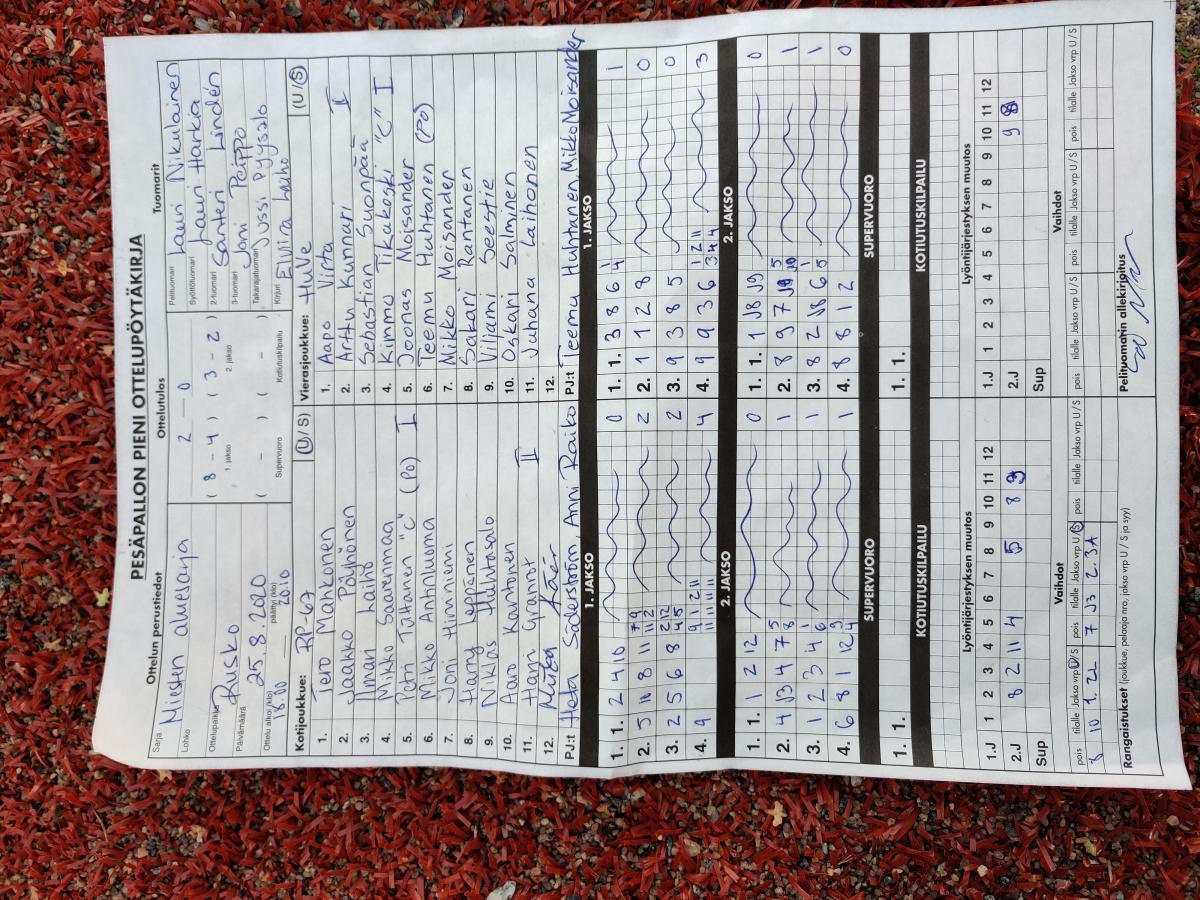 PESÄPALLON PIENI OTTELUPÖYTÄKIRJA
Ottelun perustiedot
Ottelutulos
Tuomarit
Sarja
Miesten aluesarja
Lohko
Ottelupaikka
Rusko
Päivämäärä
25.8.2020
Ottelu alkoi (klo)
18.00
päättyi (klo)
20.10
2 0
( 8 - 4 ) ( 3 - 2 )
1. jakso 2. jakso
( - ) ( - )
Supervuoro Kotiutuskilpailu
Pelituomari Lauri Nikulainen
Syöttötuomari Lauri Harkia
2-tuomari Santeri Lindén
3-tuomari Joni Peippo
Takarajatuomari Jussi Pyysalo
Kirjuri Elviira Lauho
Kotijoukkue: RP-67 (U / S)
1. Tero Mahkonen
2. Jaakko Pöyhönen
3. Ilmari Laiho
4. Mikko Saarenmaa
5. Petri Tättänen "C" (PO) I
6. Mikko Anttiluoma
7. Joni Hinnniemi
8. Harry Leppänen
9. Niklas Huhtasalo
10. Aaro Kauhtonen
11. Harri Grannit II
12. Kääer
PJ:t Heta Söderström, Anni Raiko
Vierasjoukkue: HuVe (U / S)
1. Aapo Virta
2. Arttu Kunnari II
3. Sebastian Suonpää
4. Kimmo Tikakoski "C" I
5. Joonas Moisander
6. Teemu Huhtanen (PO)
7. Mikko Moisander
8. Sakari Rantanen
9. Viljami Seestie
10. Oskari Salminen
11. Juhana Laihonen
12.
PJ:t Teemu Huhtanen, Mikko Moisander
1. JAKSO
1. 1. 2 4 10 0
2. 5 10 8 11 2
3. 2 5 6 8 2
4. 9 4
2. JAKSO
1. 1. 1 2 12 0
2. 4 J3 4 7 1
3. 1 2 3 4 1
4. 6 8 1 12 1
SUPERVUORO
1. 1.
KOTIUTUSKILPAILU
1. JAKSO
1. 1. 3 8 6 1
2. 1 1 2 8 0
3. 9 3 8 5 0
4. 9 9 3 6 3
2. JAKSO
1. 1. 1 J8 J9 0
2. 8 9 7 1
3. 8 2 J8 6 1
4. 8 8 1 2 0
SUPERVUORO
1. 1.
KOTIUTUSKILPAILU
Lyöntijärjestyksen muutos
1.J 1 2 3 4 5 6 7 8 9 10 11 12
2.J 8 2 11 4 5 8 9
Sup
Vaihdot
pois tilalle Jakso vrp U/S pois tilalle Jakso vrp U/S pois tilalle Jakso vrp U/S
3 10 1. 2L 7 J3 2. 3A
Rangaistukset (joukkue, pelaaja nro, jakso vrp U / S ja syy)
Lyöntijärjestyksen muutos
1.J 1 2 3 4 5 6 7 8 9 10 11 12
2.J 9 8
Sup
Vaihdot
pois tilalle Jakso vrp U/S pois tilalle Jakso vrp U/S pois tilalle Jakso vrp U/S
Pelituomarin allekirjoitus